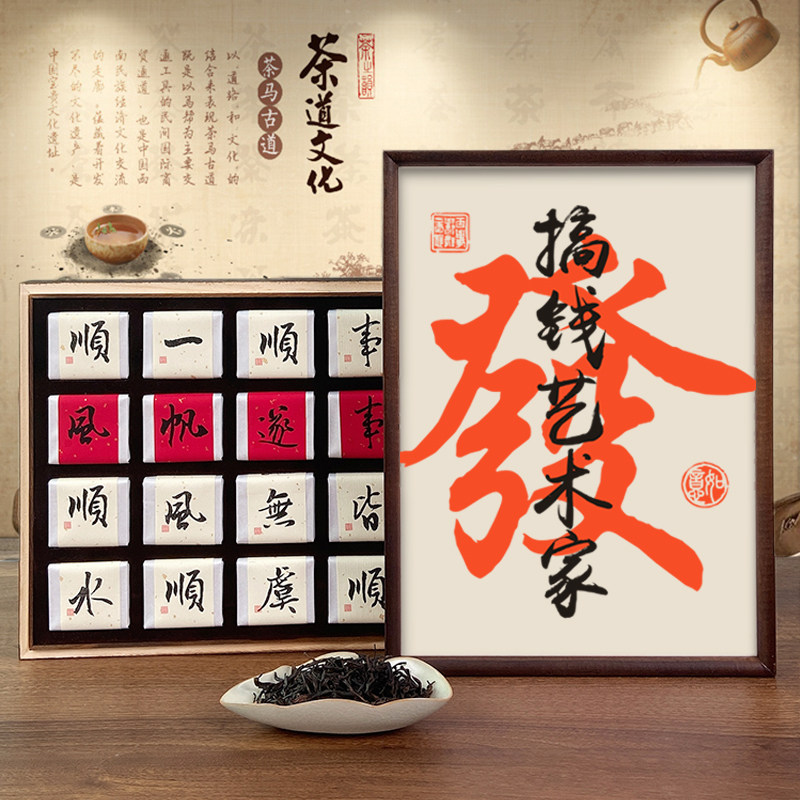 茶之韵
茶道文化
茶马古道
以“道路”和“文化”的
结合来表现茶马古道
既是以马帮为主要交
通工具的民间国际商
贸通道，也是中国西
南民族经济文化交流
的走廊。蕴藏着开发
不尽的文化遗产，是
中国宝贵文化遗址。
順風順水
一帆風順
順遂無虞
事事皆順
發
搞钱艺术家
如意